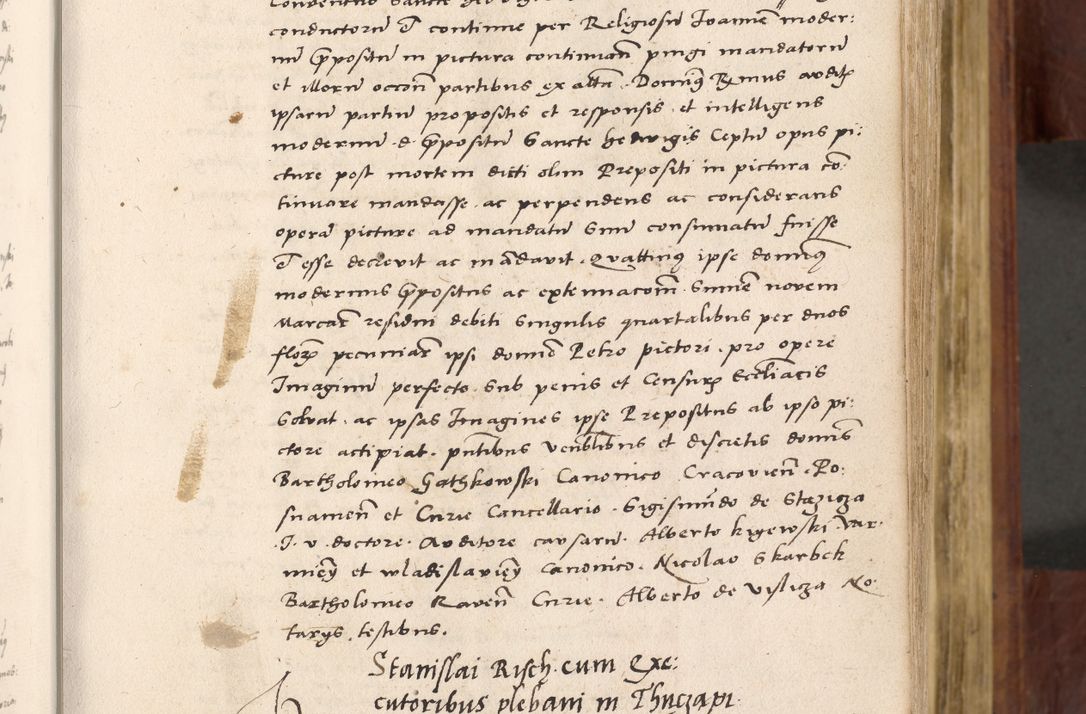 conductorũ & continue per Religiosũ Ioannẽ moder:
nũ p̃positũ in pictura continuañ pingi mandatorũ
et illorũ occoñ partibus ex altã. Dominꝰ Rmus auditꝭ
ipsarũ partiũ propositis et responsis et intelligens
modernũ d p̃positũ Sancte hedwigis Ceptũ opus pi:
cture post mortem dicti olim Prepositi in pictura cõ:
tinuare mandasse ac perpendens ac considerans
operã picture ad mandatũ Suũ consumatũ fuisse
& esse decrevit ac mãdavit. Quattinꝰ ipse dominꝰ
modernus p̃positus ac extenuacoñ Summẽ novem
Marcaꝝ residui debiti Singulis quartalibus per duos
floꝝ pecuniaꝝ ipsi domino Petro pictori. pro opere
Imaginũ perfecto Sub penis et Censurꝭ Eccl̃iacis
Solvat. ac ipsas Imagines ipse Prepositus ab ipso pi:
ctore accipiat. pñtibus Veñblibus et discretis dominis
Bartholomeo Gathkowski Canonico Cracovieñ. Po:
snameñ et Curie Cancellario. Sigismũdo de Stezicza
I. v. doctore. Auditore causarũ. Alberto kigewski Var:
mieñ et wladislavieñ Canonico. Nicolao Skarbek
Bartholomeo Raveñ Curie. Alberto de visliza No:
tarijs, testibus.
Stanislai Risch cum Exe:
cutoribus plebani in Thuczapi